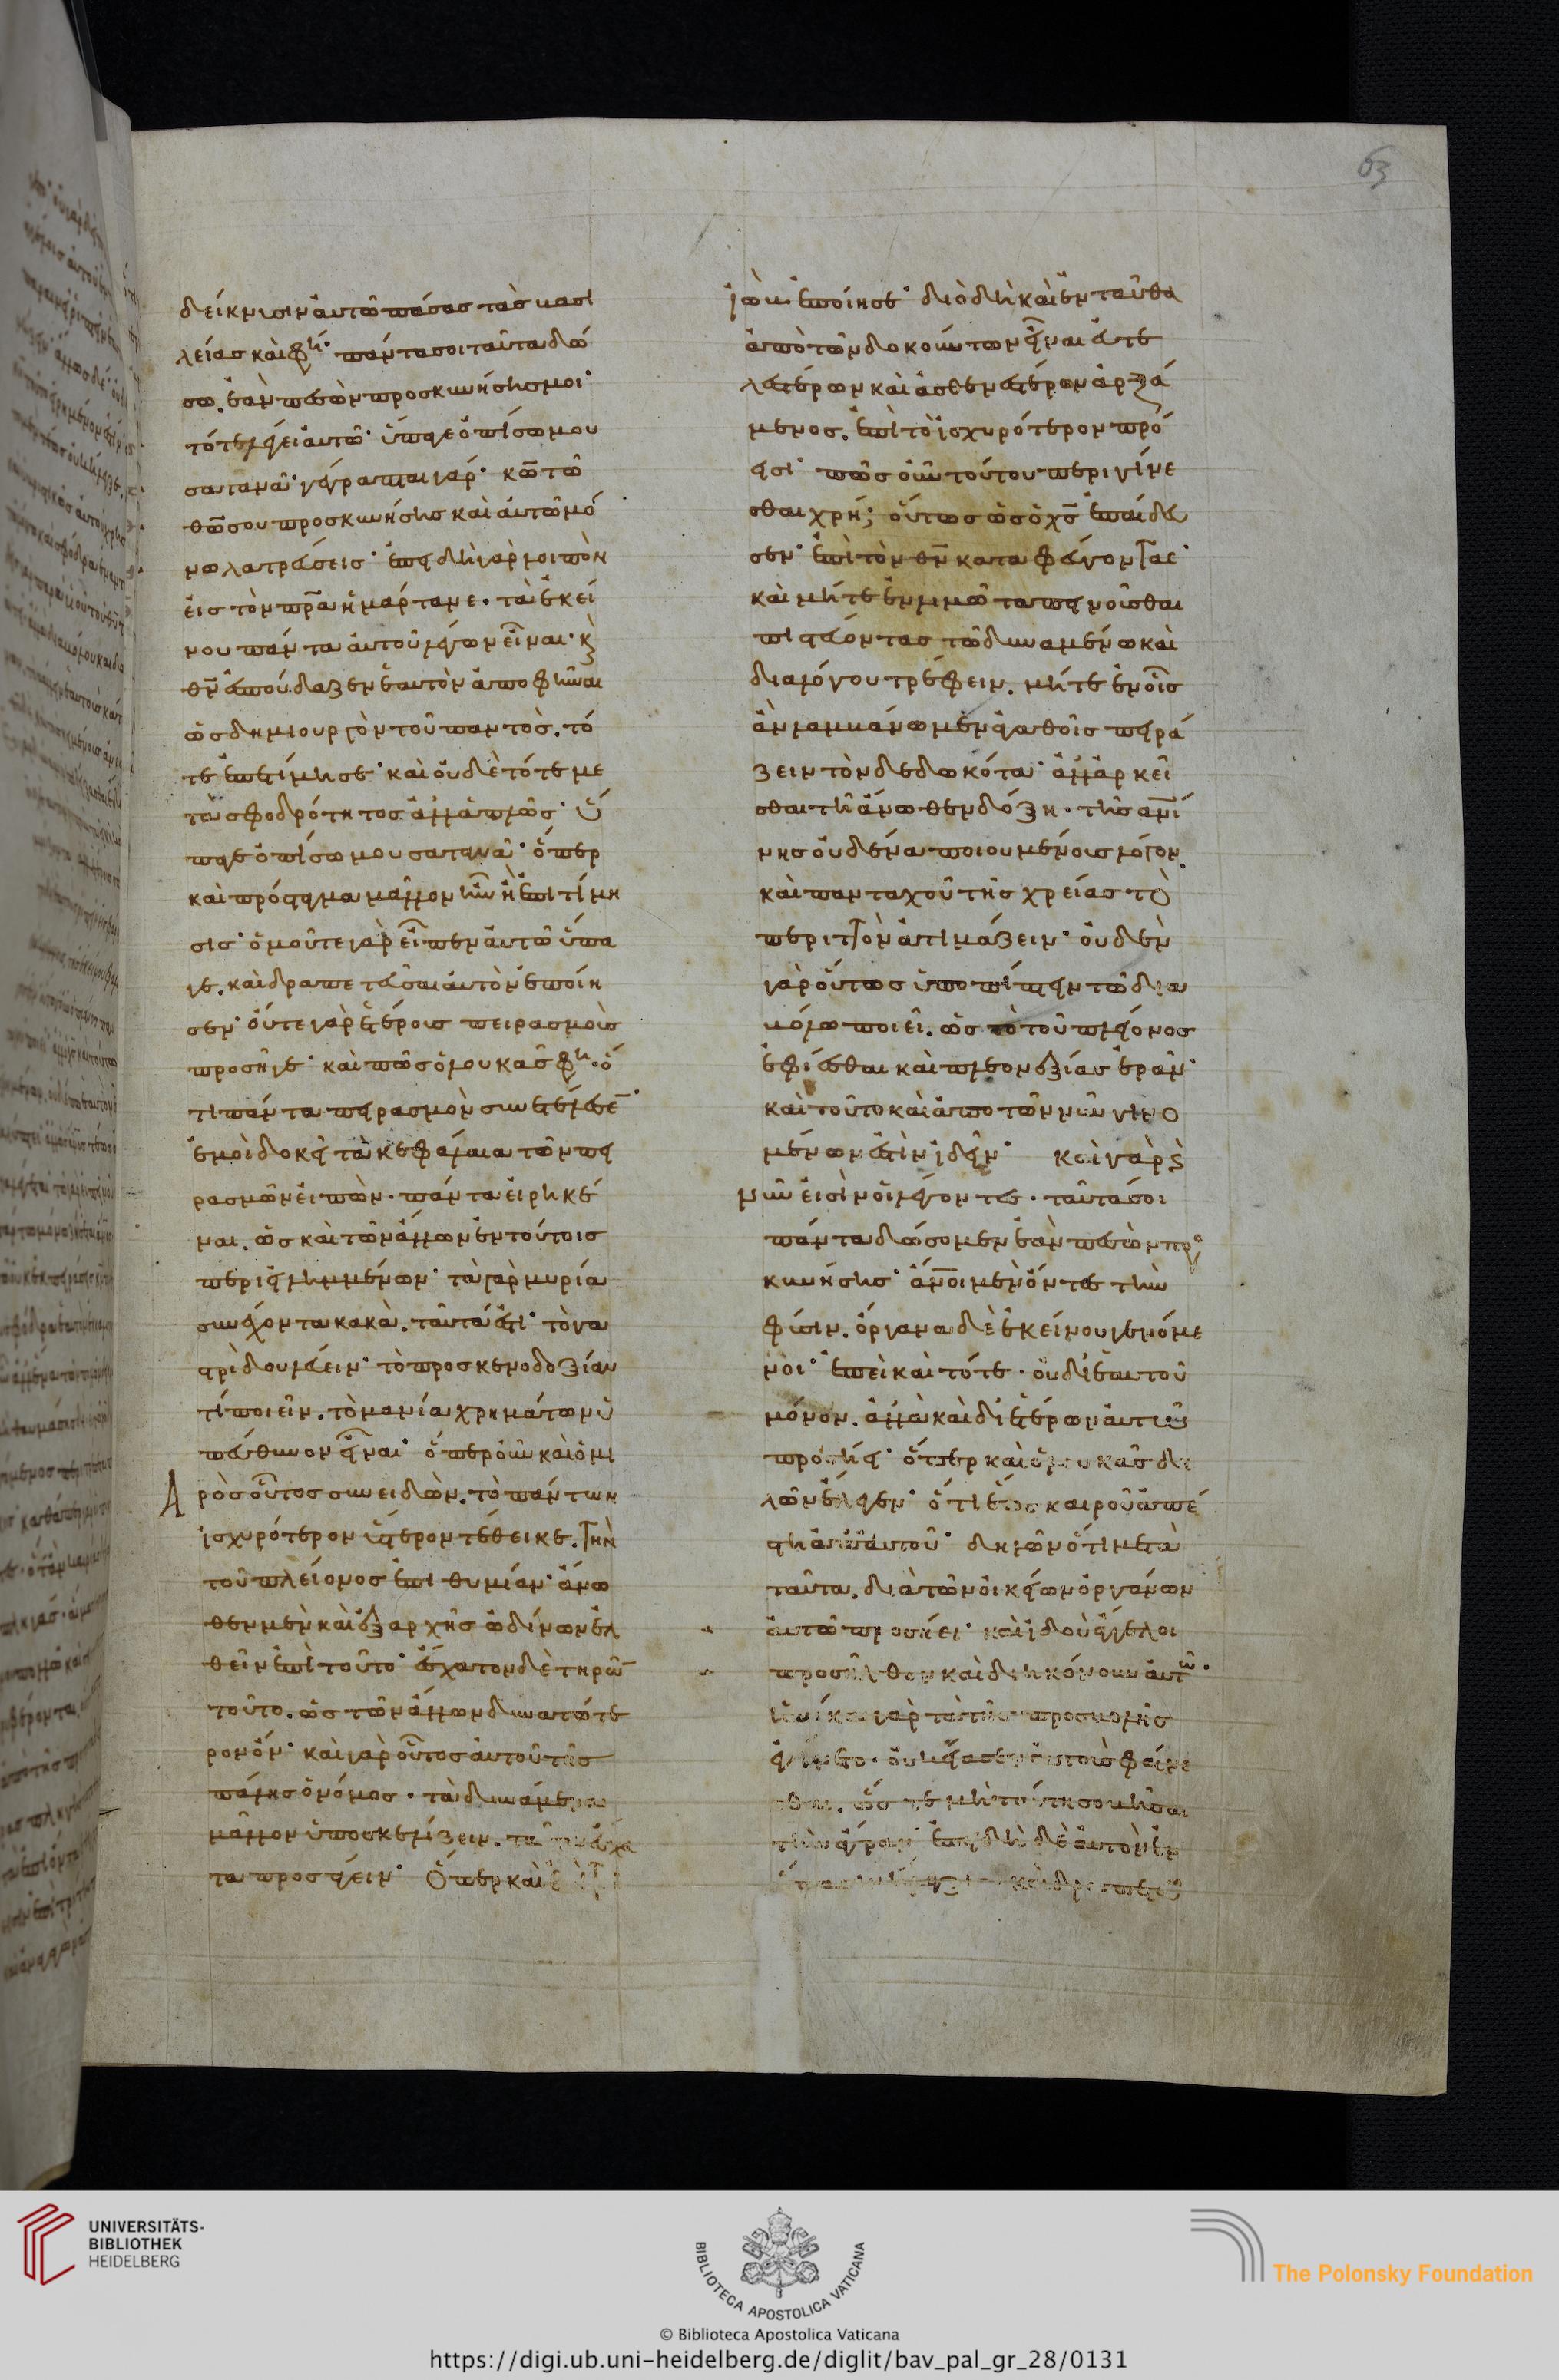 63
δείκνυσιν αὐτῶ πάσας τὰς βασι
λείας καὶ φη· πάντα σοι ταῦτα δώ
σω. ἐὰν πεσὼν προσκυνήσης μοι·
τότε λέγει αὐτῶ· ὕπαγε ὀπίσω μου
σατανᾶ· γέγραπται γάρ· κν̄ τὸ
θν̄ σου προσκυνήσης καὶ αὐτῶ μό
νω λατρεύσεις· ἐπειδὴ γὰρ λοιπὸν
εἰς τὸν πρ̄α ἡμάρτανε. τὰ ἐκεί
νου πάντα αὐτοῦ λέγων εἶναι· κ
θν̄ ἐσπούδαζεν ἑαυτὸν ἀποφῆναι
ὡς δημιουργὸν τοῦ παντός. τό
τε ἐπετίμησε· καὶ οὐδὲ τότε με
τὰ σφοδρότητος ἀλλ' ἁπλῶς· ὕ
παγε ὀπίσω μου σατανᾶ· ὅπερ
καὶ πρόσταγμα μᾶλλον ἦν ἢ ἐπιτίμη
σις· ὁμοῦ τε γὰρ εἶπεν αὐτῶ ὕπα
γε. καὶ δραπετεῦσαι αὐτὸν ἐποίη
σεν· οὔτε γὰρ ἑτέροις πειρασμοῖς
προσῆγε· καὶ πῶς ὁ λουκᾶς φη· ὅ
τι πάντα πειρασμὸν συνετέλεσε
ἐμοὶ δοκεῖ τὰ κεφάλαια τῶν πει
ρασμῶν εἰπὼν. πάντα εἰρηκέ
ναι. ὡς καὶ τῶν ἄλλων ἐν τούτοις
περιειλημμένων· τὰ γὰρ μυρία
συνέχοντα κακὰ. ταῦτά ἐστι· τὸ γα
στρὶ δουλεύειν· τὸ πρὸς κενοδοξίαν
τί ποιεῖν. τὸ μανία χρημάτων ὑ
πεύθυνον εἶναι· ὅπερ οὖν καὶ ὁ μι
αρὸς οὗτος συνειδὼν. τὸ πάντων
ἰσχυρότερον ὕστερον τέθεικε. τὴν
τοῦ πλείονος ἐπιθυμίαν· ἄνω
θεν μὲν καὶ ἐξαρχῆς ὠδίνων ἐλ
θεῖν ἐπὶ τοῦτο· ἔσχατον δὲ τηρῶν
τοῦτο. ὡς τῶν ἄλλων δυνατώτε
ρον ὄν· καὶ γὰρ οὗτος αὐτοῦ τῆς
πάλης ὁ νόμος. τὰ δυνάμενα
μᾶλλον ὑποσκελίζειν. ταῦτα ἔσχα
τα προσάγειν· ὅπερ καὶ ἐπὶ τοῦ
ἰὼβ ἐποίησε· διὸ δὴ καὶ ἐνταῦθα
ἀπὸ τῶν δοκούντων εἶναι εὐτε
λεστέρων καὶ ἀσθενεστέρων ἀρξά
μενος. ἐπὶ τὸ ἰσχυρότερον πρό
εισι· πῶς οὖν τούτου περιγίνε
σθαι χρή; οὕτως ὡς ὁ χς̄ ἐπαίδευ
σεν· ἐπὶ τὸν θν̄ καταφεύγοντας·
καὶ μήτε ἐν λιμῶ ταπεινοῦσθαι
πιστεύοντας τῶ δυναμένω καὶ
διὰ λόγου τρέφειν. μήτε ἐν οἷς
ἂν λαμβάνωμεν ἀγαθοῖς πειρά
ζειν τὸν δεδωκότα· ἀλλ' ἀρκεῖ
σθαι τῆ ἄνωθεν δόξη. τῆς ἀν̄ί
νης οὐδένα ποιουμένους λόγον
καὶ πανταχοῦ τῆς χρείας τὸ
περιττὸν ἀτιμάζειν· οὐδὲν
γὰρ οὕτως ὑποπίπτειν τῶ δια
βόλω ποιεῖ. ὡς τὸ τοῦ πλείονος
ἐφίεσθαι καὶ πλεονεξίας ἐρᾶν·
καὶ τοῦτο καὶ ἀπὸ τῶν νῦν γινο
μένων ἔστιν ἰδεῖν· καὶ γὰρ ς
νῦν εἰσὶν οἱ λέγοντες. ταῦτά σοι
πάντα δώσομεν ἐὰν πεσὼν προσ
κυνήσης· ἄν̄οι μὲν ὄντες τὴν
φύσιν. ὄργανα δὲ ἐκείνου γενόμε
νοι· ἐπεὶ καὶ τότε. οὐ δι' ἑαυτοῦ
μόνον. ἀλλὰ καὶ δι' ἑτέρων αὐτῶ
προσήει· ὅπερ καὶ ὁ λουκᾶς δη
λῶν ἔλεγεν· ὅτι ἕως καιροῦ ἀπέ
στη ἀπ' αὐτοῦ· δηλῶν ὅτι μετὰ
ταῦτα. διὰ τῶν οἰκείων ὀργάνων
αὐτῶ προσήει· καὶ ἰδοὺ ἄγγελοι
προσῆλθον καὶ διηκόνουν αὐτῶ.
ἡνίκα γὰρ τὰ τῆς προσβολῆς
ἐγίνετο. οὐκ εἴασεν αὐτοὺς φαίνε
σθαι. ὥστε μὴ ταύτη σοβῆσαι
τὴν ἄγραν· ἐπειδὴ δὲ αὐτὸν ἐν
UNIVERSITÄTS-
BIBLIOTHEK
HEIDELBERG
BIBLIOTECA APOSTOLICA VATICANA
The Polonsky Foundation
© Biblioteca Apostolica Vaticana
https://digi.ub.uni-heidelberg.de/diglit/bav_pal_gr_28/0131